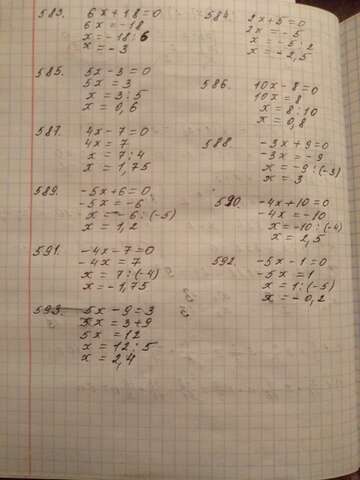 583. 6x+18=0
6x=-18
x=-18:6
x=-3
584. 2x+5=0
2x=-5
x=-5:2
x=-2,5
585. 5x-3=0
5x=3
x=3:5
x=0,6
586. 10x-8=0
10x=8
x=8:10
x=0,8
587. 4x-7=0
4x=7
x=7:4
x=1,75
588. -3x+9=0
-3x=-9
x=-9:(-3)
x=3
589. -5x+6=0
-5x=-6
x=-6:(-5)
x=1,2
590. -4x+10=0
-4x=-10
x=-10:(-4)
x=2,5
591. -4x-7=0
-4x=7
x=7:(-4)
x=-1,75
592. -5x-1=0
-5x=1
x=1:(-5)
x=-0,2
593. 5x-9=3
5x=3+9
5x=12
x=12:5
x=2,4